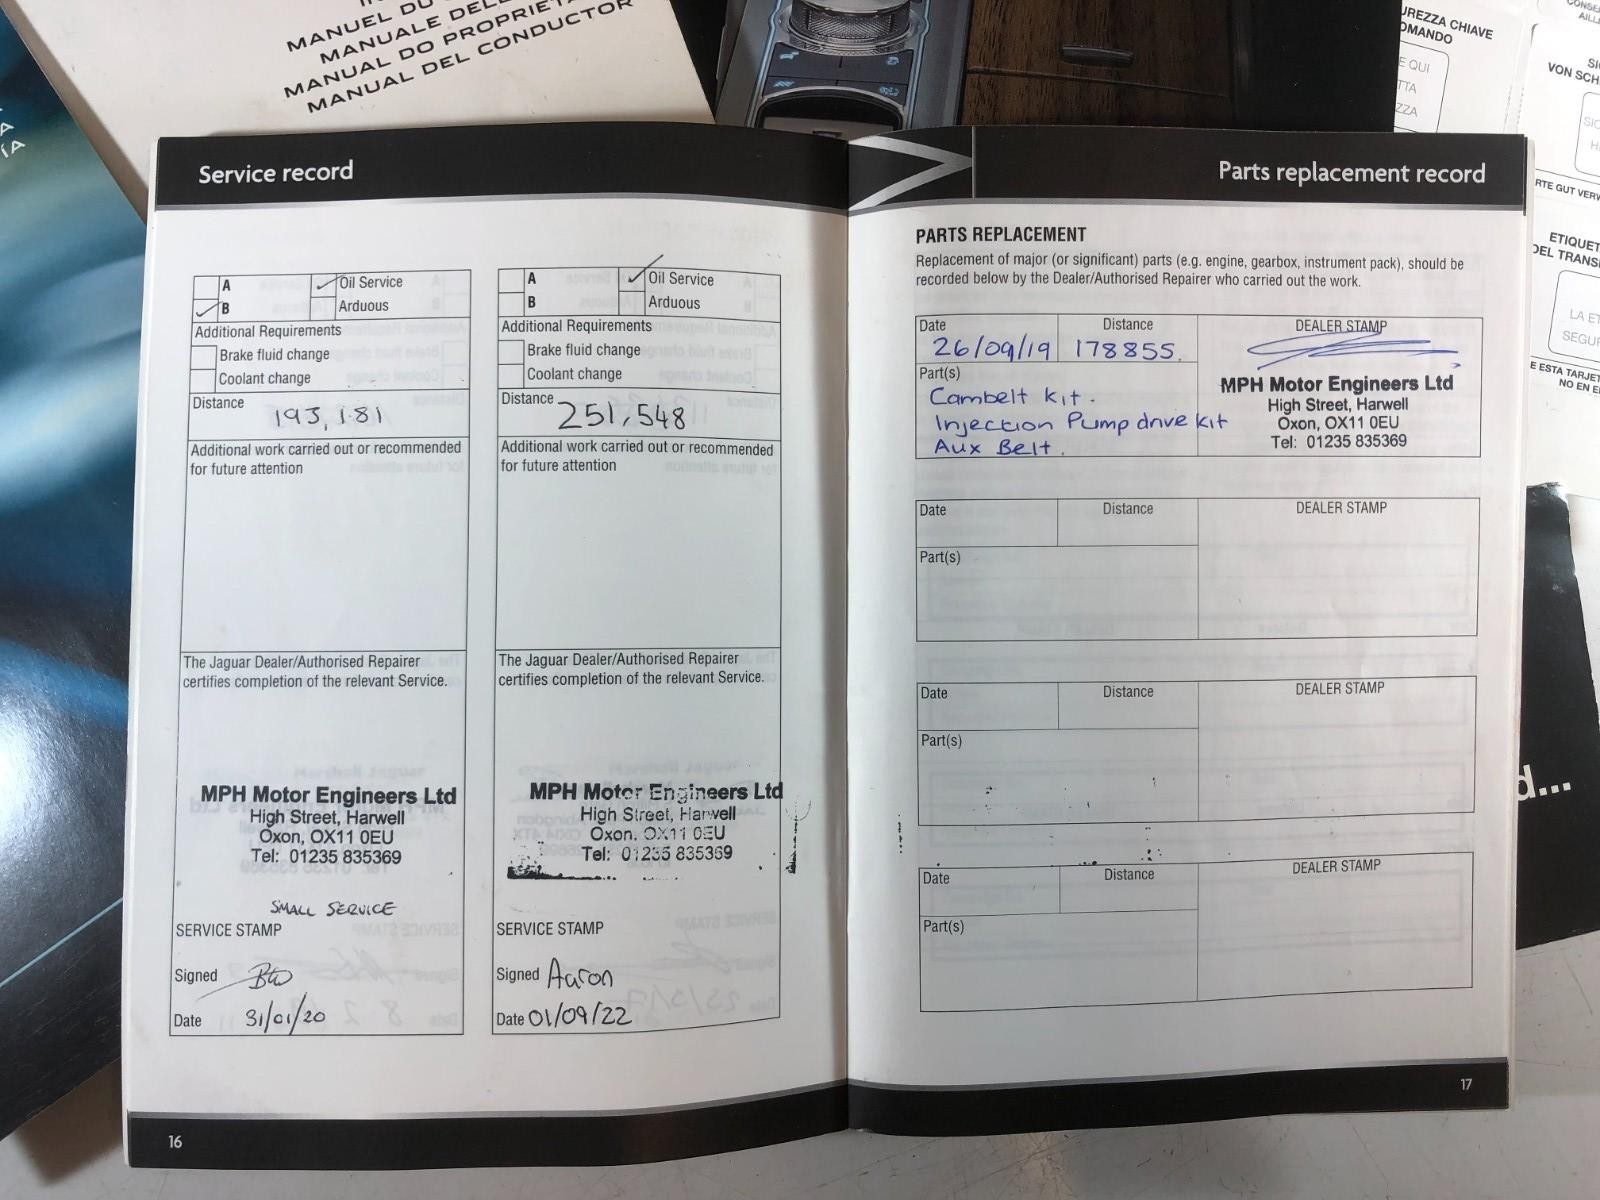 MANUEL DU
MANUALE DELL
MANUAL DO PROPRIETA
MANUAL DEL CONDUCTOR
UREZZA CHIAVE
OMANDO
E QUI
TTA
ZZA
VON SCH
RTE GUT VERW
ETIQUET
DEL TRANS
LA ET
SEGUR
E ESTA TARJET
NO EN E
d...
Service record
A
Oil Service
B
Arduous
Additional Requirements
Brake fluid change
Coolant change
Distance
193,181
Additional work carried out or recommended
for future attention
The Jaguar Dealer/Authorised Repairer
certifies completion of the relevant Service.
MPH Motor Engineers Ltd
High Street, Harwell
Oxon, OX11 0EU
Tel: 01235 835369
SMALL SERVICE
SERVICE STAMP
Signed
Date 31/01/20
A
Oil Service
B
Arduous
Additional Requirements
Brake fluid change
Coolant change
Distance 251,548
Additional work carried out or recommended
for future attention
The Jaguar Dealer/Authorised Repairer
certifies completion of the relevant Service.
MPH Motor Engineers Ltd
High Street, Harwell
Oxon. OX11 0EU
Tel: 01235 835369
SERVICE STAMP
Signed Aaron
Date 01/09/22
16
Parts replacement record
PARTS REPLACEMENT
Replacement of major (or significant) parts (e.g. engine, gearbox, instrument pack), should be
recorded below by the Dealer/Authorised Repairer who carried out the work.
Date Distance DEALER STAMP
26/09/19 178855.
Part(s)
Cambelt kit.
Injection Pump drive kit
Aux Belt.
MPH Motor Engineers Ltd
High Street, Harwell
Oxon, OX11 0EU
Tel: 01235 835369
Date Distance DEALER STAMP
Part(s)
Date Distance DEALER STAMP
Part(s)
Date Distance DEALER STAMP
Part(s)
17